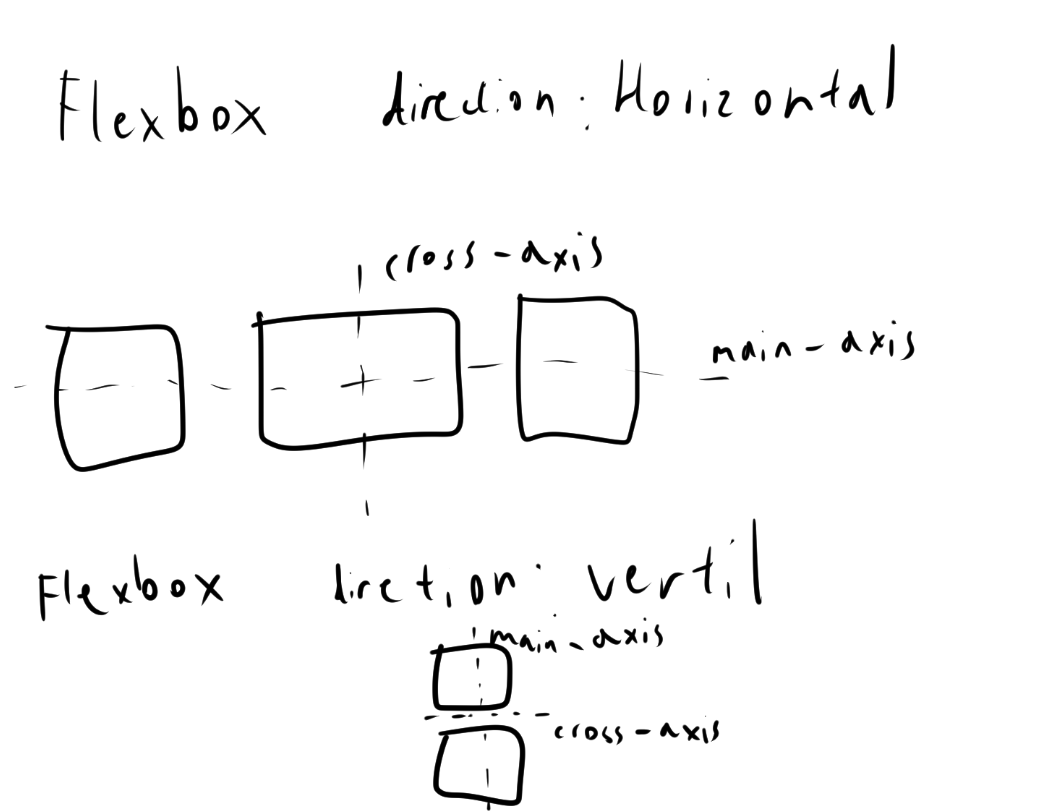 Flexbox direction: Horizontal
cross-axis
main-axis
Flexbox direction: vertil
main-axis
cross-axis